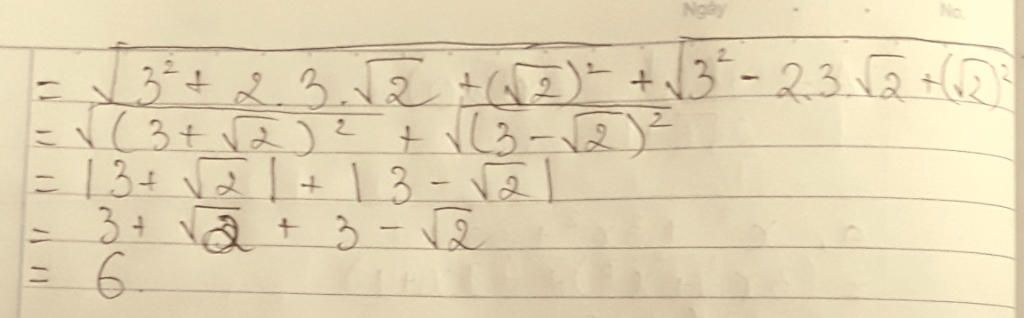 Ngày No.
= √(3² + 2.3.√2 + (√2)²) + √(3² - 2.3√2 + (√2)²)
= √((3 + √2)²) + √((3 - √2)²)
= |3 + √2| + |3 - √2|
= 3 + √2 + 3 - √2
= 6